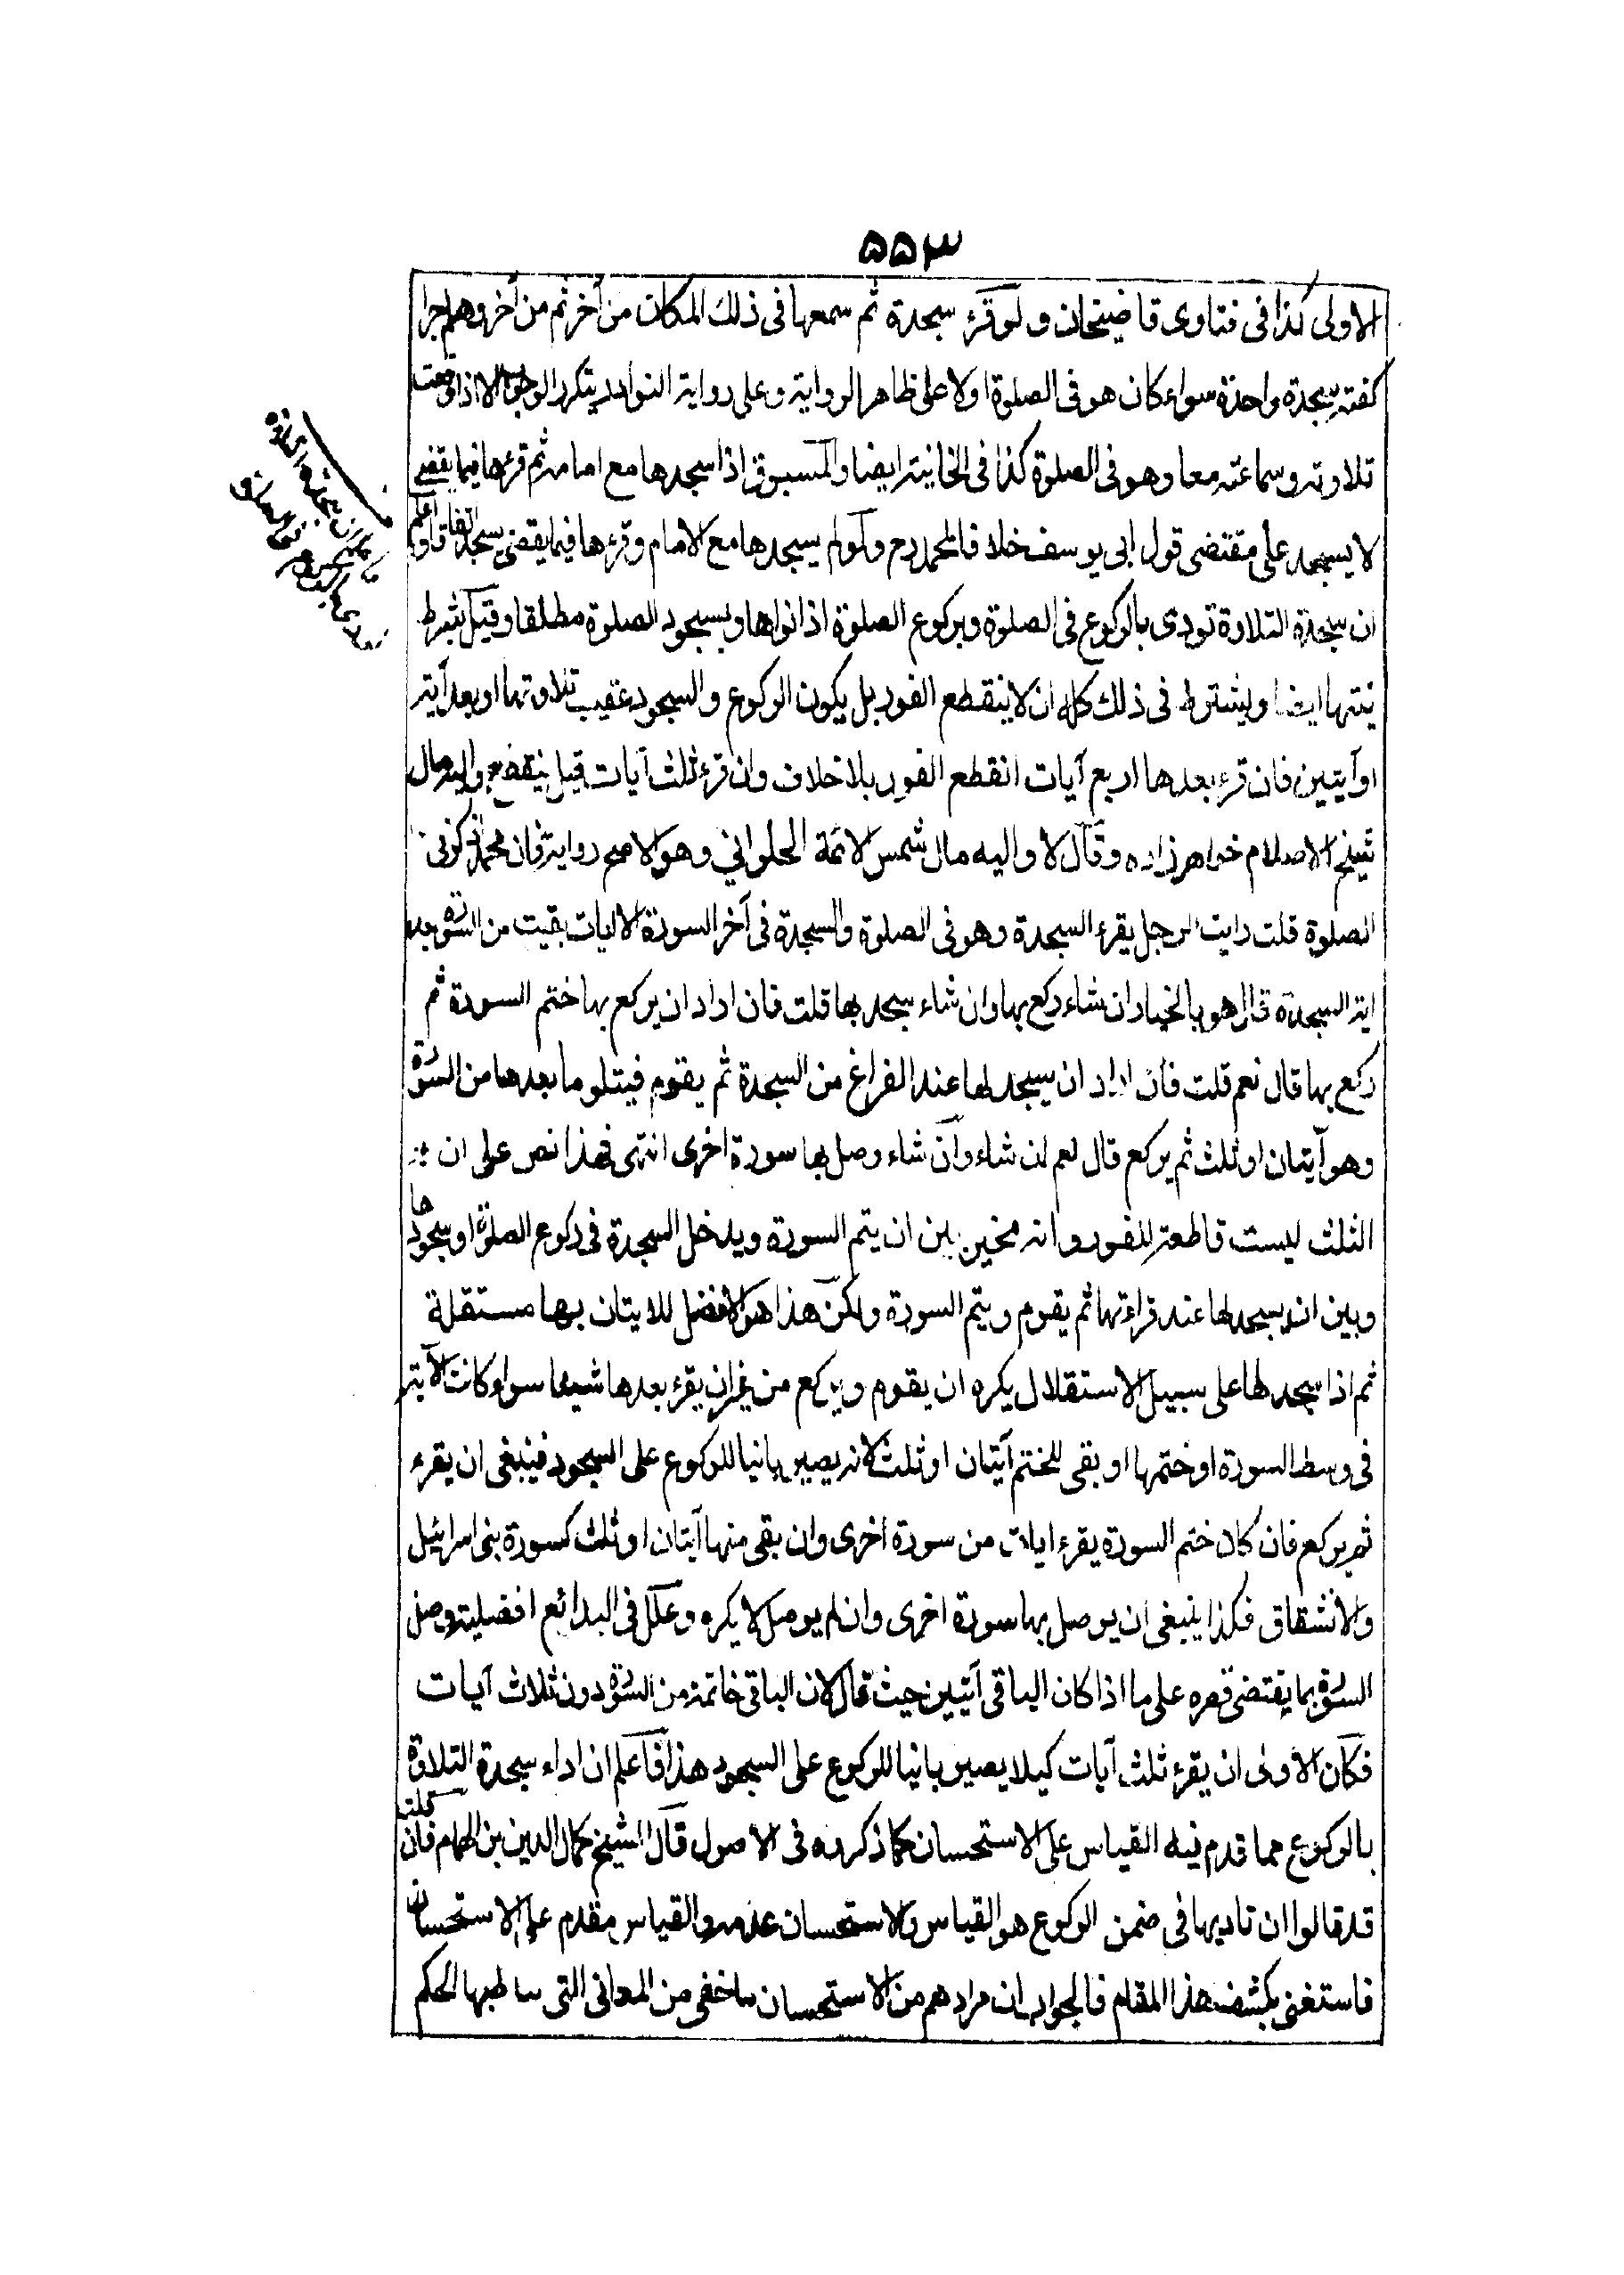 ۵۵۳
الاولى كذا فى فتاوى قاضيخان ولو قرء سجدة ثم سمعها فى ذلك المكان من آخر ثم من آخر وهلم جرا
كفته سجدة واحدة سواء كان هو فى الصلوة اولا على ظاهر الرواية وعلى رواية النوادر يتكرر الوجوب الا اذا وقعت
تلاوته وسماعته معا وهو فى الصلوة كذا فى الخانية ايضا والمسبوق اذا سجدها مع امامه ثم قرءها فيما يقضى
لا يسجد على مقتضى قول ابى يوسف خلافا لمحمد رح ولو لم يسجدها مع الامام وقرءها فيما يقضى سجد اتفاقا واعلم
ان سجدة التلاوة تودى بالركوع فى الصلوة وبركوع الصلوة اذا نواها وبسجود الصلوة مطلقا وقيل بشرط
نيتها ايضا ويشترط فى ذلك كله ان لا ينقطع الفور بل يكون الركوع والسجود عقيب تلاوتها او بعد آية
او آيتين فان قرء بعدها اربع آيات انقطع الفور بلا خلاف وان قرء ثلث آيات قيل ينقطع واليه مال
شيخ الاسلام خواهرزاده وقال لا واليه مال شمس الائمة الحلوانى وهو الاصح رواية فان محمدا ذكر فى
الصلوة قلت رايت الرجل يقرء السجدة وهو فى الصلوة والسجدة فى آخر السورة الا ايات بقيت من السورة بعد
اية السجدة قال هو بالخيار ان شاء ركع بها وان شاء سجد بها قلت فان اراد ان يركع بها ختم السورة ثم
ركع بها قال نعم قلت فان اراد ان يسجد لها عند الفراغ من السجدة ثم يقوم فيتلو ما بعدها من السورة
وهو آيتان او ثلث ثم يركع قال نعم ان شاء وان شاء وصل بها سورة اخرى انتهى فهذا نص على ان
الثلث ليست قاطعة للفور وانه مخير بين ان يتم السورة ويدخل السجدة فى ركوع الصلوة او سجودها
وبين ان يسجد لها عند قراءتها ثم يقوم ويتم السورة ولكن هذا هو الافضل للايتان بها مستقلة
ثم اذا سجد لها على سبيل الاستقلال يكره ان يقوم ويركع من غير ان يقرء بعدها شيئا سواء كانت الآية
فى وسط السورة او ختمها او بقى للختم آيتان او ثلث لانه يصير بانيا للركوع على السجود فينبغى ان يقرء
ثم يركع فان كان ختم السورة يقرء ايات من سورة اخرى وان بقى منها آيتان او ثلث كسورة بنى اسرائيل
والانشقاق فكذا ينبغى ان يوصل بها سورة اخرى وان لم يوصل لا يكره وعلل فى البدائع افضلية وصل
السورة بما يقتضى قصره على ما اذا كان الباقى آيتين حيث قال لان الباقى خاتمة من السورة دون ثلاث آيات
فكان الاولى ان يقرء ثلث آيات كيلا يصير بانيا للركوع على السجود هذا فاعلم ان اداء سجدة التلاوة
بالركوع مما قدم فيه القياس على الاستحسان كما ذكره فى الاصول قال الشيخ كمال الدين بن الهمام فان قلت
قد قالوا ان تاديها فى ضمن الركوع هو القياس والاستحسان عدمه والقياس مقدم على الاستحسان
فاستغنى بكشف هذا المقام فالجواب ان مرادهم من الاستحسان ما خفى من المعانى التى يناط بها الحكم